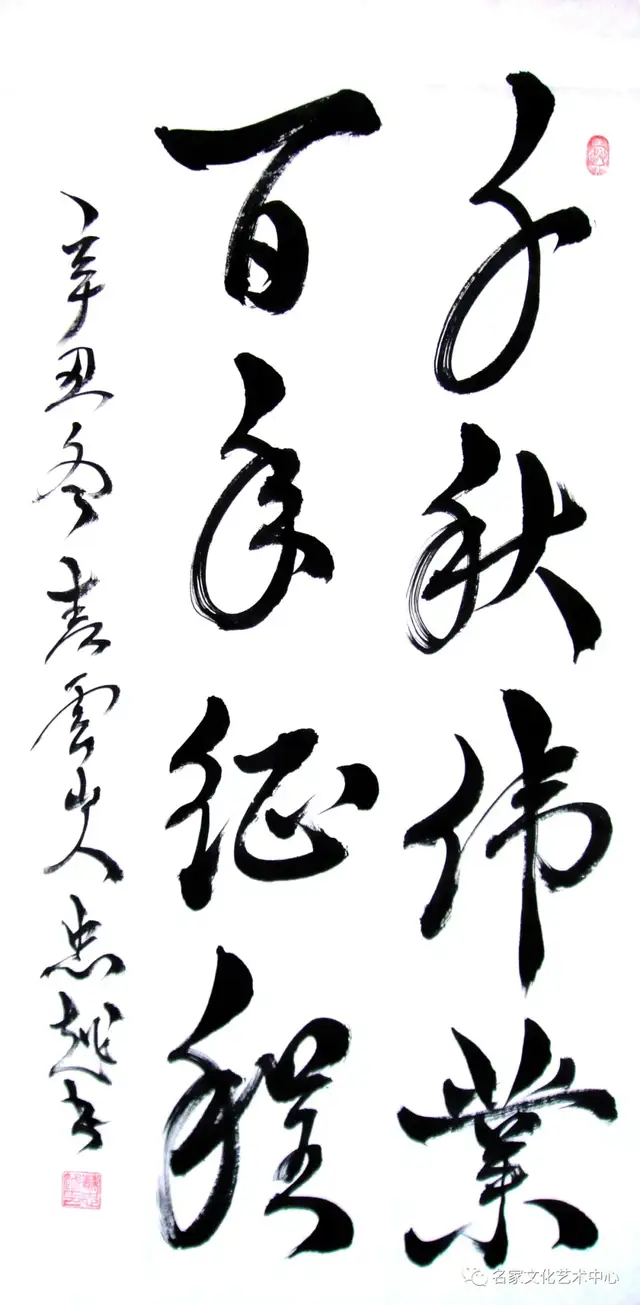 千秋伟業
百年征程
辛丑冬春雲山人忠越书
名家文化艺术中心